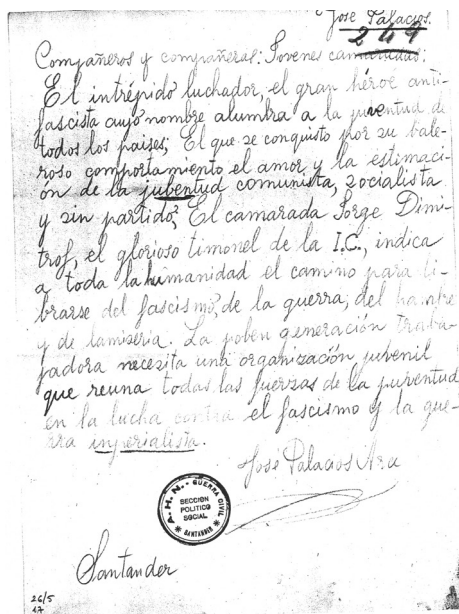 José Palacios.
249
Compañeros y compañeras: Jovenes camaradas:
El intrépido luchador, el gran héroe anti-
fascista cuyo nombre alumbra a la juventud de
todos los paises; El que se conquisto por su bale-
roso comportamiento el amor y la estimaci-
ón de la juventud comunista, socialista
y sin partido, El camarada Jorge Dimi-
trof, el glorioso timonel de la I.C., indica
a toda la humanidad el camino para li-
brarse del fascismo, de la guerra, del hambre
y de la miseria. La joben generación traba-
jadora necesita una organización juvenil
que reuna todas las fuerzas de la juventud
en la lucha contra el fascismo y la gue-
rra inperialista.
José Palacios Ara
A.H.N. - GUERRA CIVIL
SECCION
POLITICO
SOCIAL
SANTANDER
Santander
26/5
17